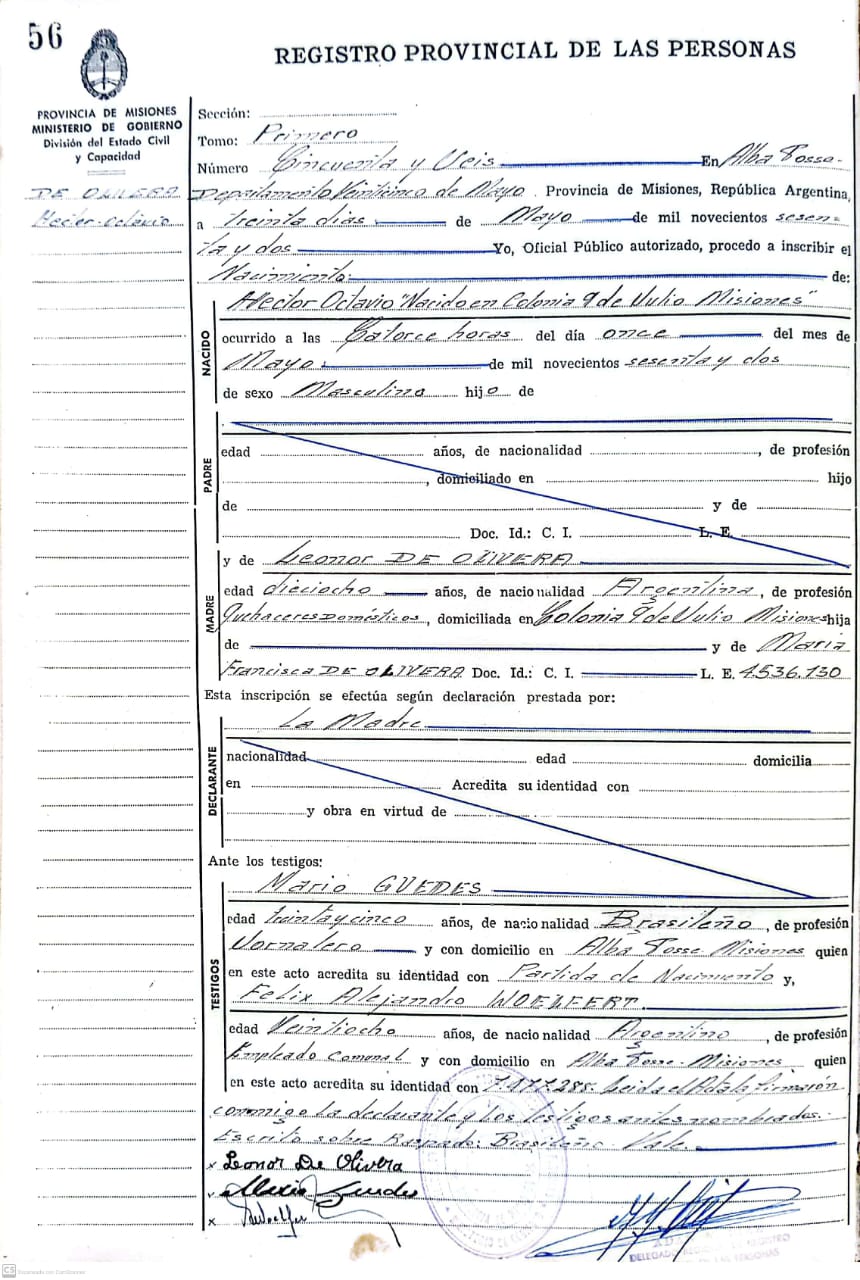 56
REGISTRO PROVINCIAL DE LAS PERSONAS
PROVINCIA DE MISIONES
MINISTERIO DE GOBIERNO
División del Estado Civil
y Capacidad
DE OLIVERA
Hector Octavio
Sección:
Tomo: Primero
Número Cincuenta y Seis En Alba Posse-
Departamento Veinticinco de Mayo. Provincia de Misiones, República Argentina,
a treinta días de Mayo de mil novecientos sesen-
ta y dos Yo, Oficial Público autorizado, procedo a inscribir el
Nacimiento: de:
NACIDO
Hector Octavio "Nacido en Colonia 9 de Julio Misiones"
ocurrido a las Catorce horas del día once del mes de
Mayo de mil novecientos sesenta y dos
de sexo Masculino hijo de
PADRE
edad años, de nacionalidad , de profesión
, domiciliado en hijo
de y de
Doc. Id.: C. I. L. E.
MADRE
y de Leonor DE OLIVERA
edad dieciocho años, de nacionalidad Argentina, de profesión
Quehaceres Domésticos, domiciliada en Colonia 9 de Julio Misiones hija
de y de Maria
Francisca DE OLIVERA Doc. Id.: C. I. L. E. 4.536.130
Esta inscripción se efectúa según declaración prestada por:
La Madre
DECLARANTE
nacionalidad edad domicilia
en Acredita su identidad con
y obra en virtud de
Ante los testigos:
TESTIGOS
Mario GUEDES
edad treinta y cinco años, de nacionalidad Brasileño, de profesión
Jornalero y con domicilio en Alba Posse Misiones quien
en este acto acredita su identidad con Partida de Nacimiento y,
Felix Alejandro WOELFERT.
edad Veintiocho años, de nacionalidad Argentino, de profesión
Empleado Comunal y con domicilio en Alba Posse-Misiones quien
en este acto acredita su identidad con 7.477.288. Leida el Acta la firmarón
conmigo la declarante y los testigos antes nombrados.-
Escrito sobre Raspado: Brasileño. Vale.
x Leonor De Olivera
x Mario Guedes
x
CS Escaneado con CamScanner